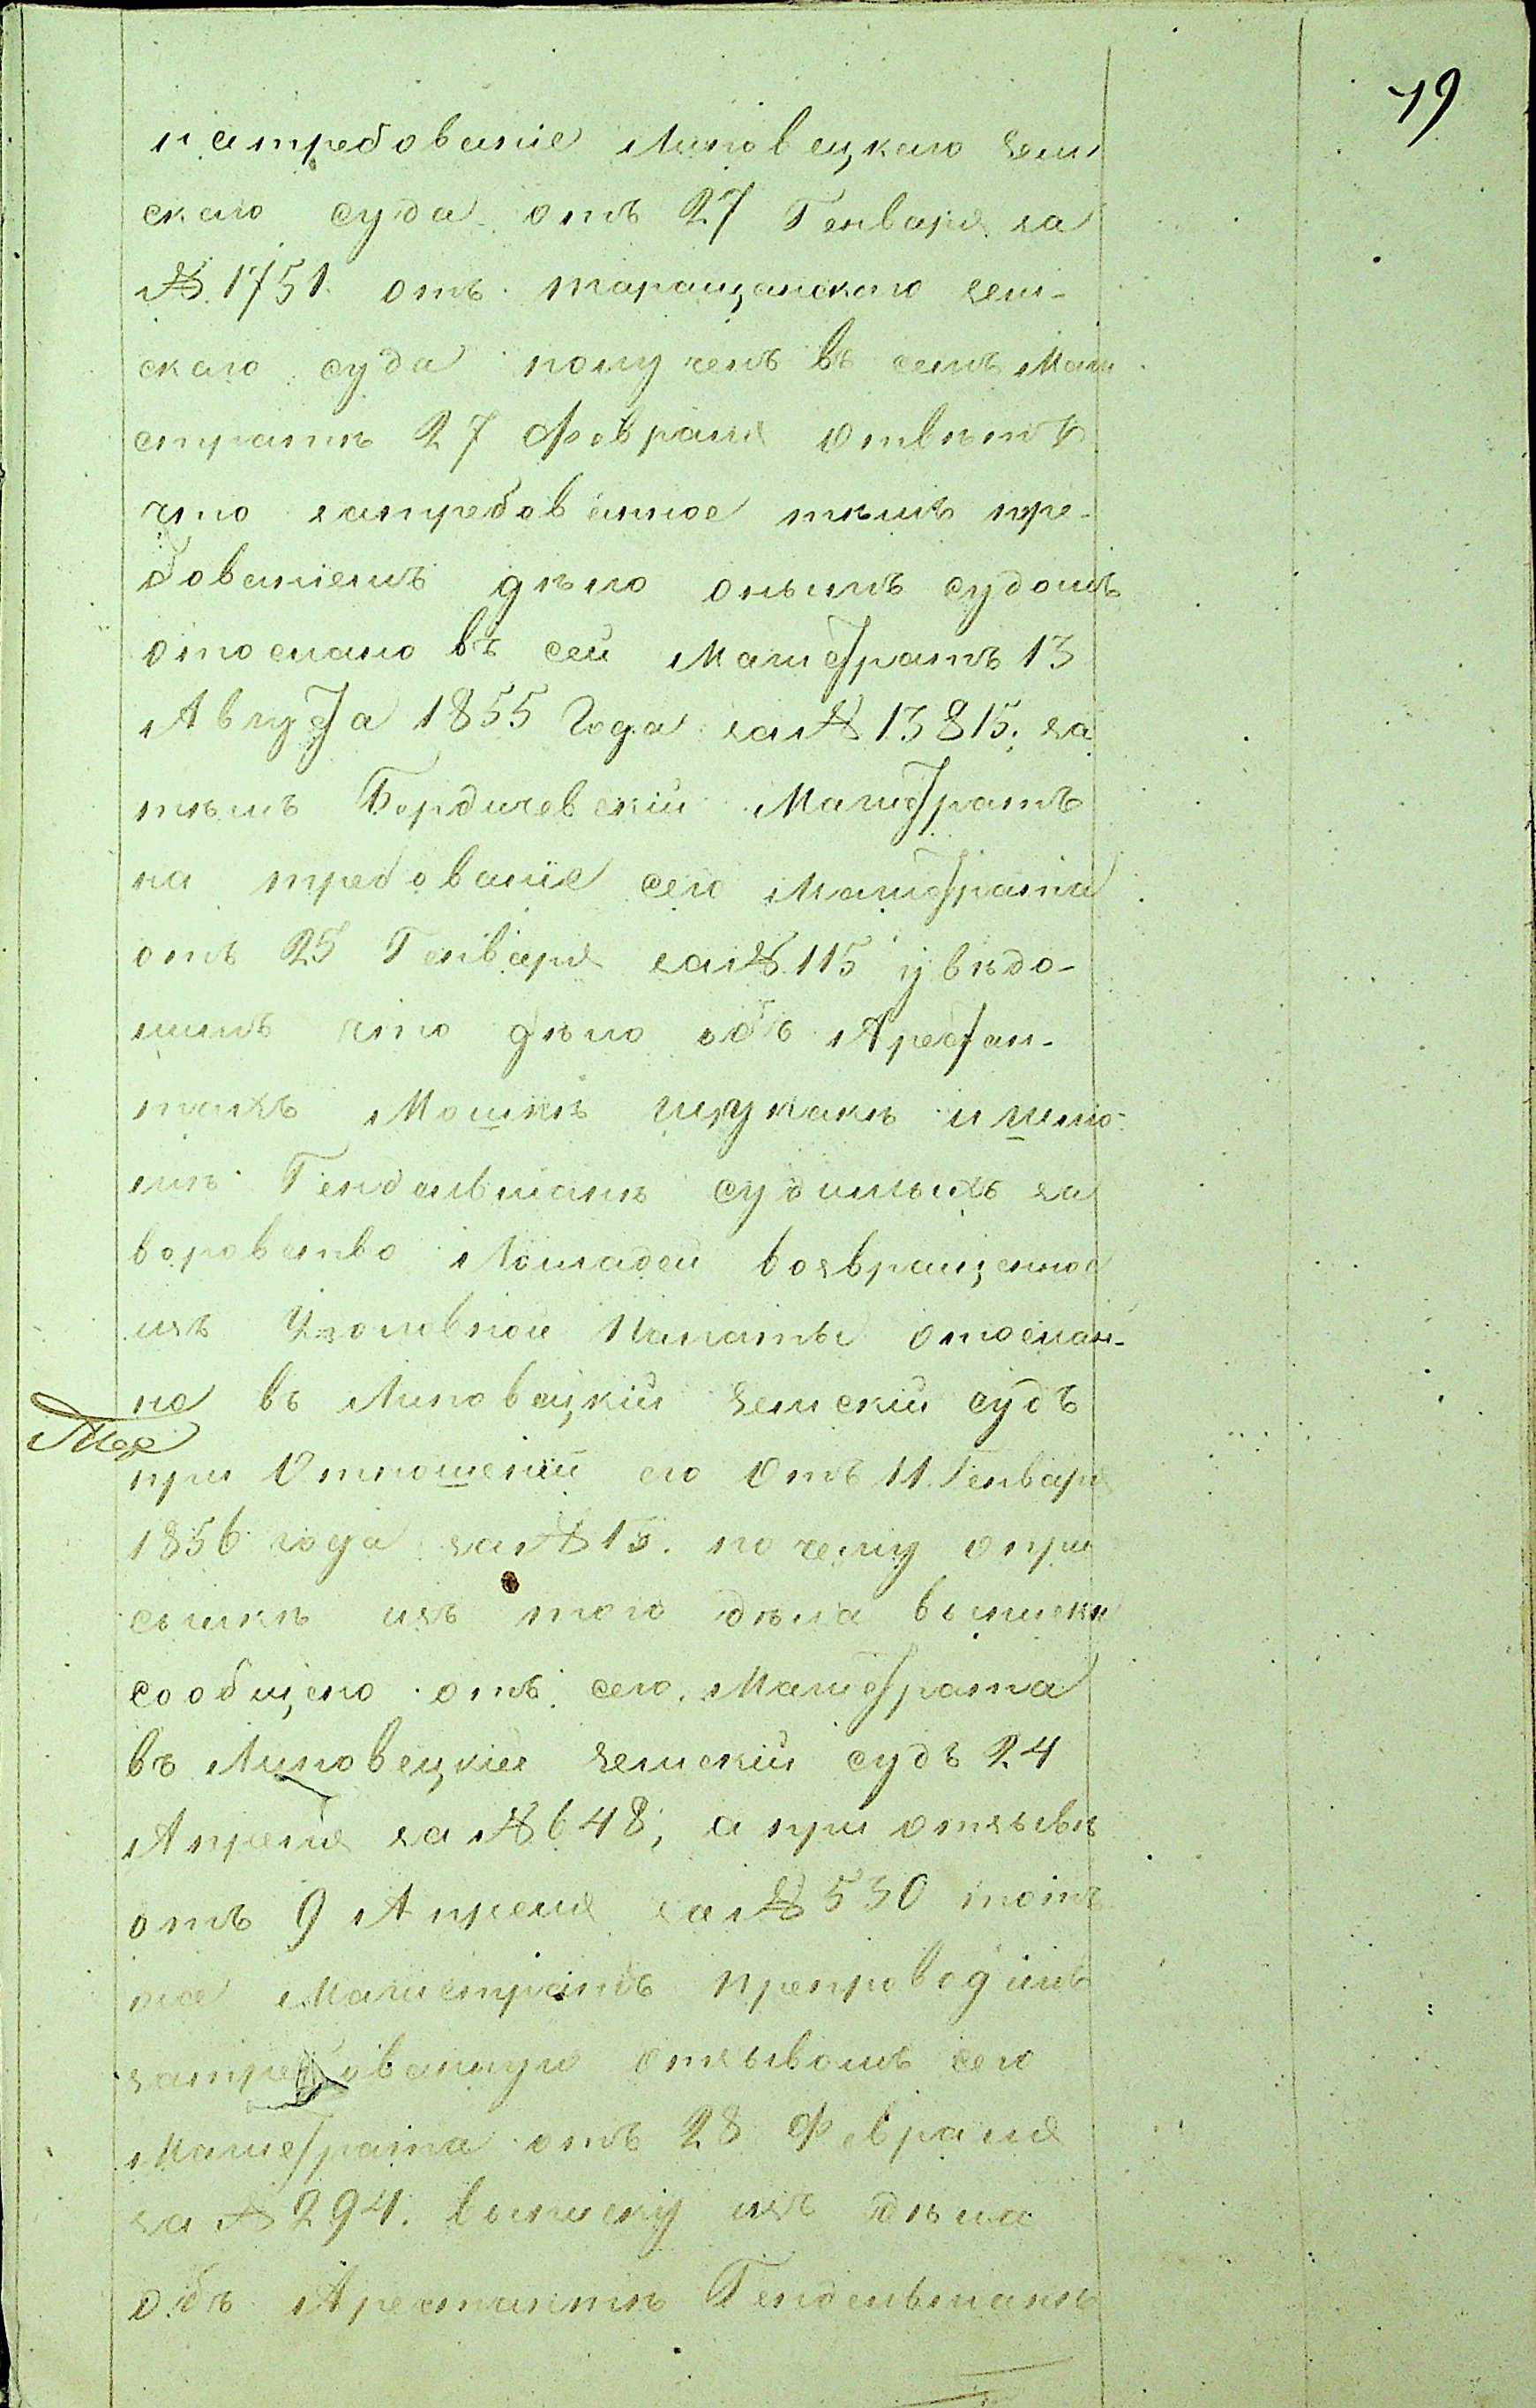 79
натребованіе Липовецкаго зем
скаго суда отъ 27 Генваря за
№ 1751. отъ таращанскаго зем-
скаго суда полученъ въ семъ Маги
стратѣ 27 Февраля Ответъ
что затребованное тѣмъ тре-
бованіемъ дѣло онымъ судомъ
отослано въ сей Магистратъ 13
Августа 1855 Года за № 13815; за
тѣмъ Бердичевскій Магистратъ
на требованіе сего Магистрата
отъ 25 Генваря за № 115 увѣдо-
милъ что дѣло объ Арестан-
тахъ Мошкѣ Щукакѣ и Шмо-
лѣ Гендельманѣ судимыхъ за
воровство Лошадей возвращенное
изъ Уголовной Палаты отослан-
но въ Липовецкій земскій судъ
при Отношеніи его Отъ 11 Генваря
1856 года за № 15. по чему опри
сылкѣ изъ того дѣла выписки
сообщено отъ сего Магистрата
въ Липовецкій земскій судъ 24
Апреля за № 648; а при отзывѣ
отъ 9 Апреля за № 530 тотъ
же Магистратъ препроводилъ
затребованную отзывомъ сего
Магистрата отъ 28 Февраля
за № 294. выписку изъ дѣла
объ Арестантѣ Гендельманѣ